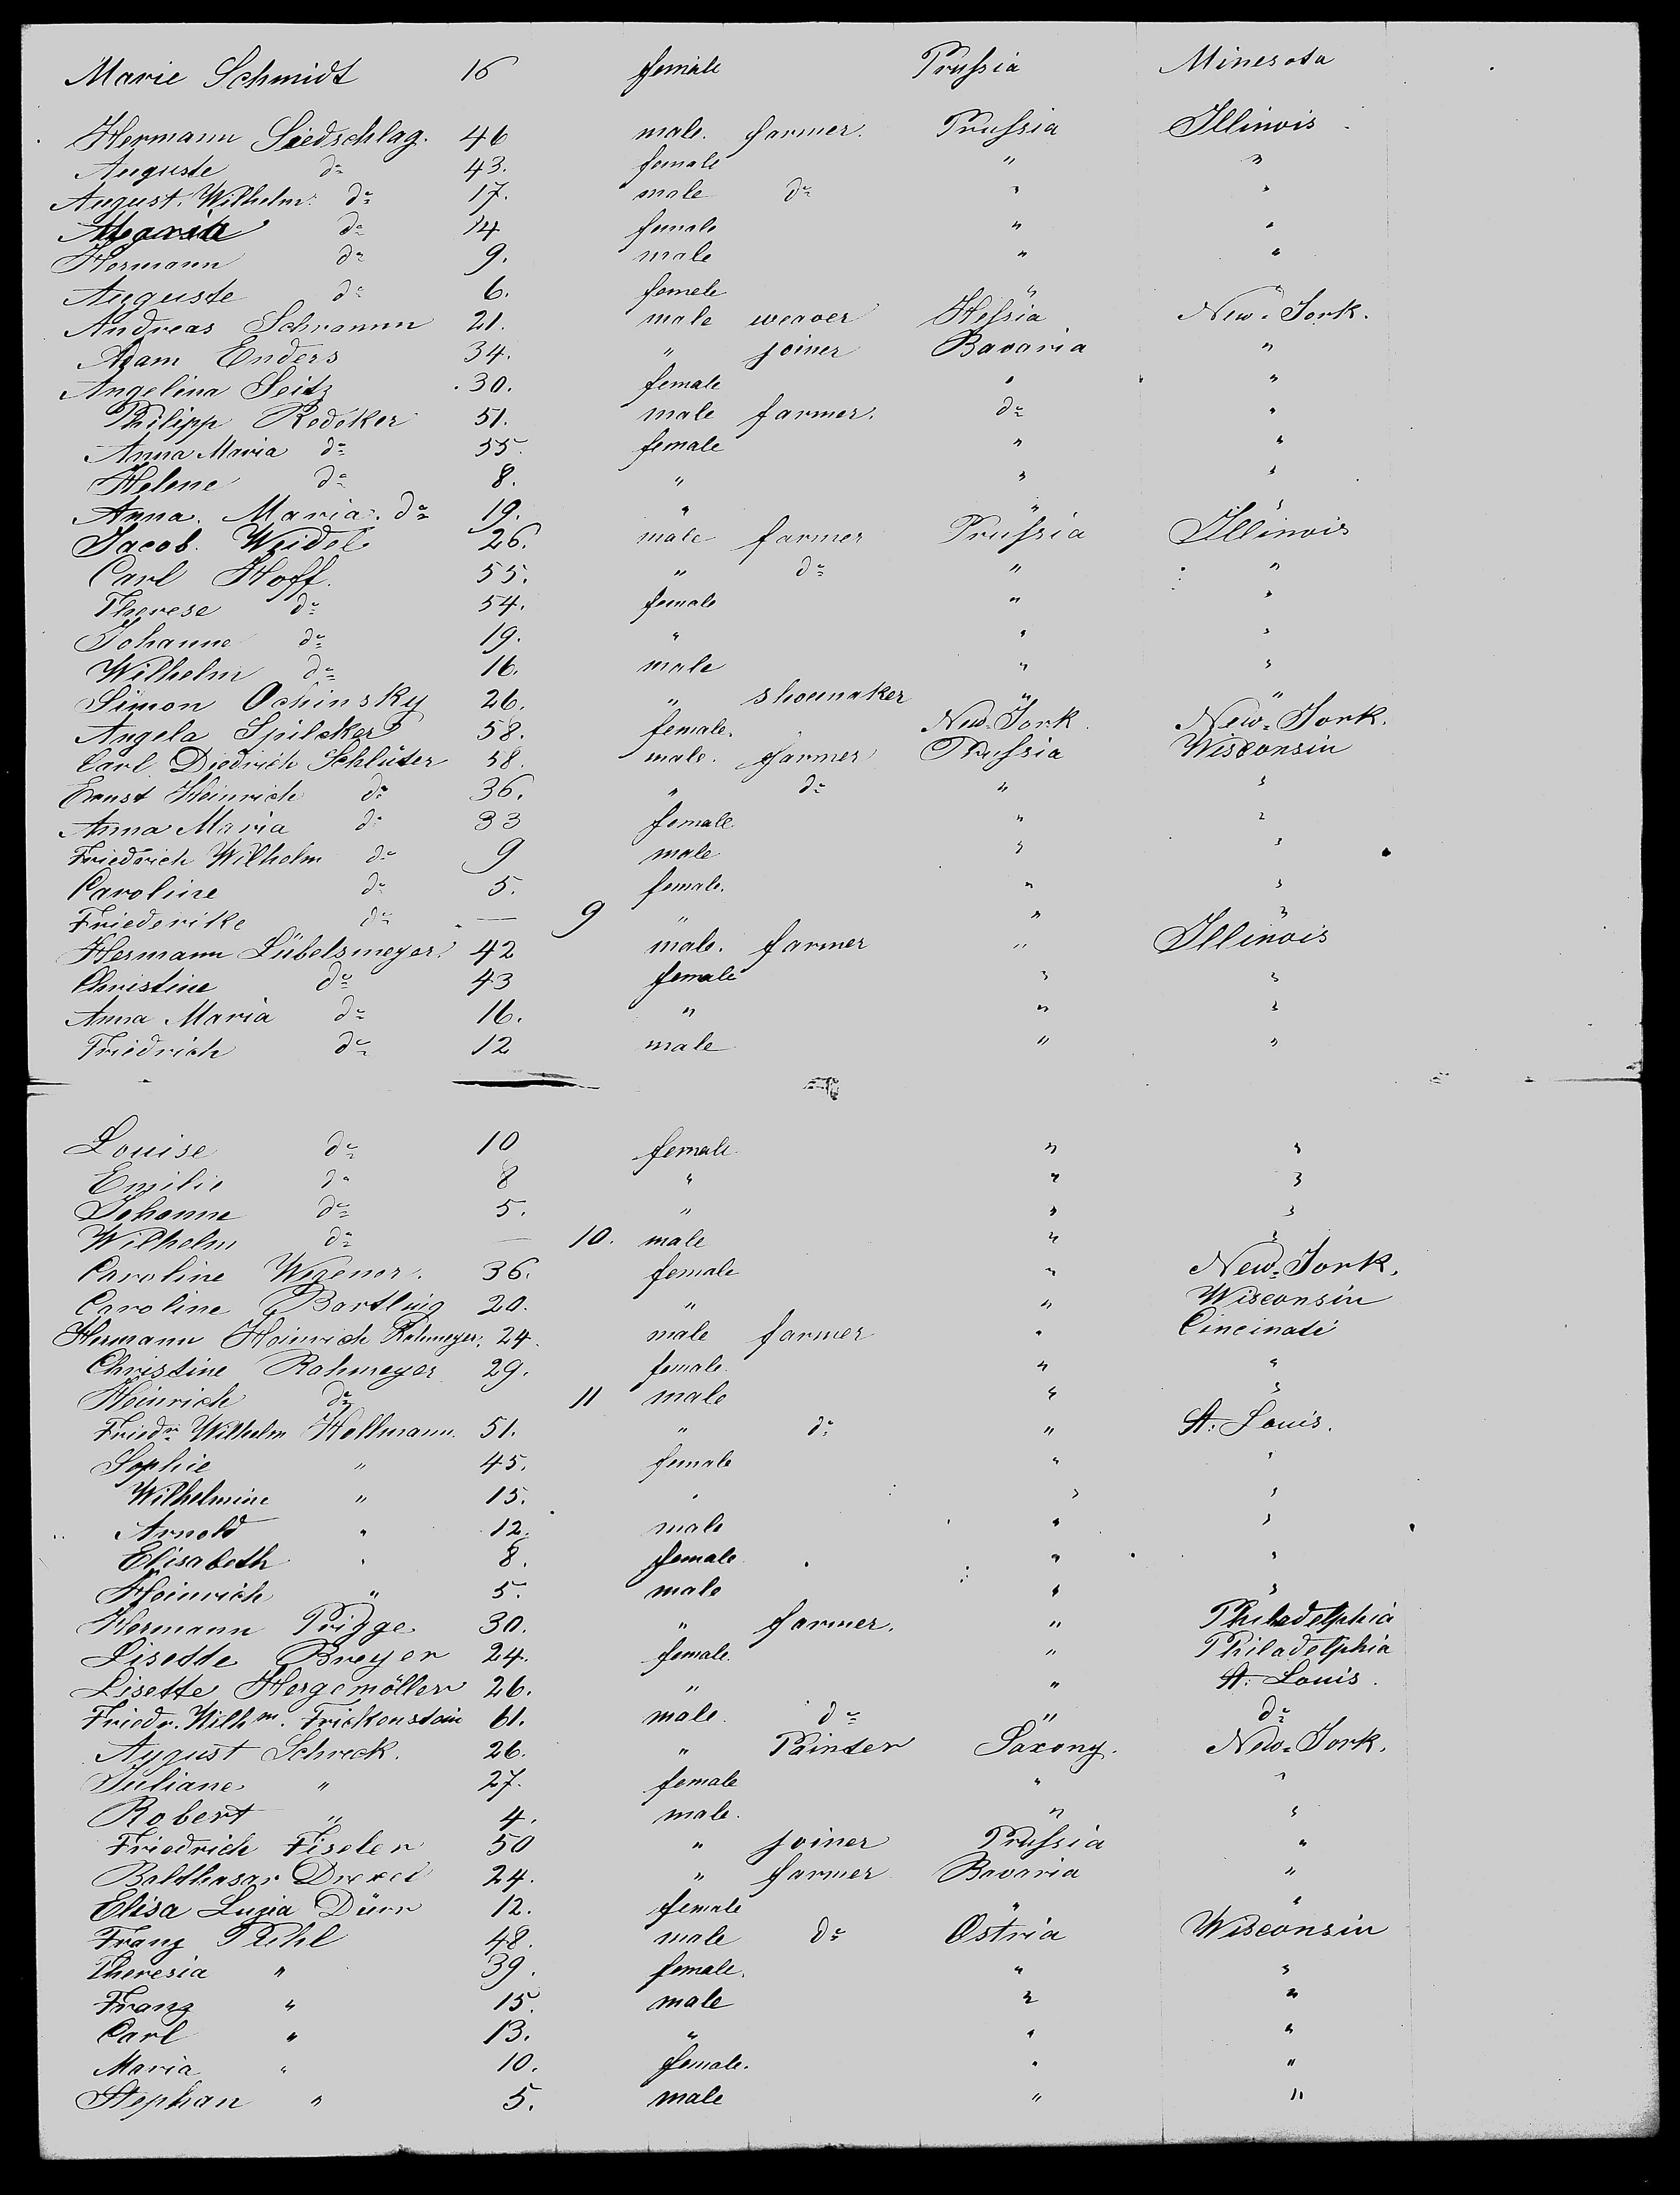 Marie Schmidt 16 female Prußsia Minesota
Hermann Siedschlag. 46 male. farmer. Prußsia Illinois
Auguste do 43. female " "
August. Wilhelm. do 17. male do " "
Maria do 14 female " "
Hermann do 9. male " "
Auguste do 6. female " "
Andreas Schramm 21. male weaver Heßsia New-York.
Adam Enders 34. " joiner Bavaria "
Angelina Seitz 30. female " "
Philipp Redeker 51. male farmer. do "
Anna Maria do 55. female " "
Helene do 8. " " "
Anna. Maria. do 19. " " "
Jacob. Weidel 26. male farmer Prußsia Illinois
Carl Hoff. 55. " do " "
Therese do 54. female " "
Johanne do 19. " " "
Wilhelm do 16. male " "
Simon Ochinsky 26. " shoemaker " "
Angela Spilcker 58. female. New-York. New-York.
Carl Diedrich Schlüter 58. male. farmer Prußsia Wisconsin
Ernst Heinrich do 36. " do " "
Anna Maria do 33 female " "
Friedrich Wilhelm do 9 male " "
Caroline do 5. female. " "
Friederike do — 9 " " "
Hermann Lübelsmeyer. 42 male. farmer " Illinois
Christine do 43 female " "
Anna Maria do 16. " " "
Friedrich do 12 male " "
Louise do 10 female " "
Emilie do 8 " " "
Johanne do 5. " " "
Wilhelm do — 10. male " "
Caroline Wegener. 36. female " New-York.
Caroline Bartling 20. " " Wisconsin
Hermann Heinrich Rahmeyer. 24. male farmer " Cincinati
Christine Rahmeyer 29. female. " "
Heinrich do 11 male " "
Friedr. Wilhelm Hollmann. 51. " do " St. Louis.
Sophie " 45. female " "
Wilhelmine " 15. " " "
Arnold " 12. male " "
Elisabeth " 8. female " "
Heinrich " 5. male " "
Hermann Prigge 30. " farmer. " Philadelphia
Lisette Breyer 24. female. " Philadelphia
Lisette Hergemöller 26. " " St. Louis.
Friedr. Wilhm. Frickenstein 61. male. do " do
August Schreck. 26. " Painter Saxony. New-York.
Juliane " 27. female " "
Robert " 4. male. " "
Friedrich Fiseler 50 " joiner Prußsia "
Balthasar Drexel 24. " farmer Bavaria "
Elisa Luzia Dürr 12. female " "
Franz Puhl 48. male do Östria Wisconsin
Theresia " 39. female. " "
Franz " 15. male " "
Carl " 13. " " "
Maria " 10. female. " "
Stephan " 5. male " "